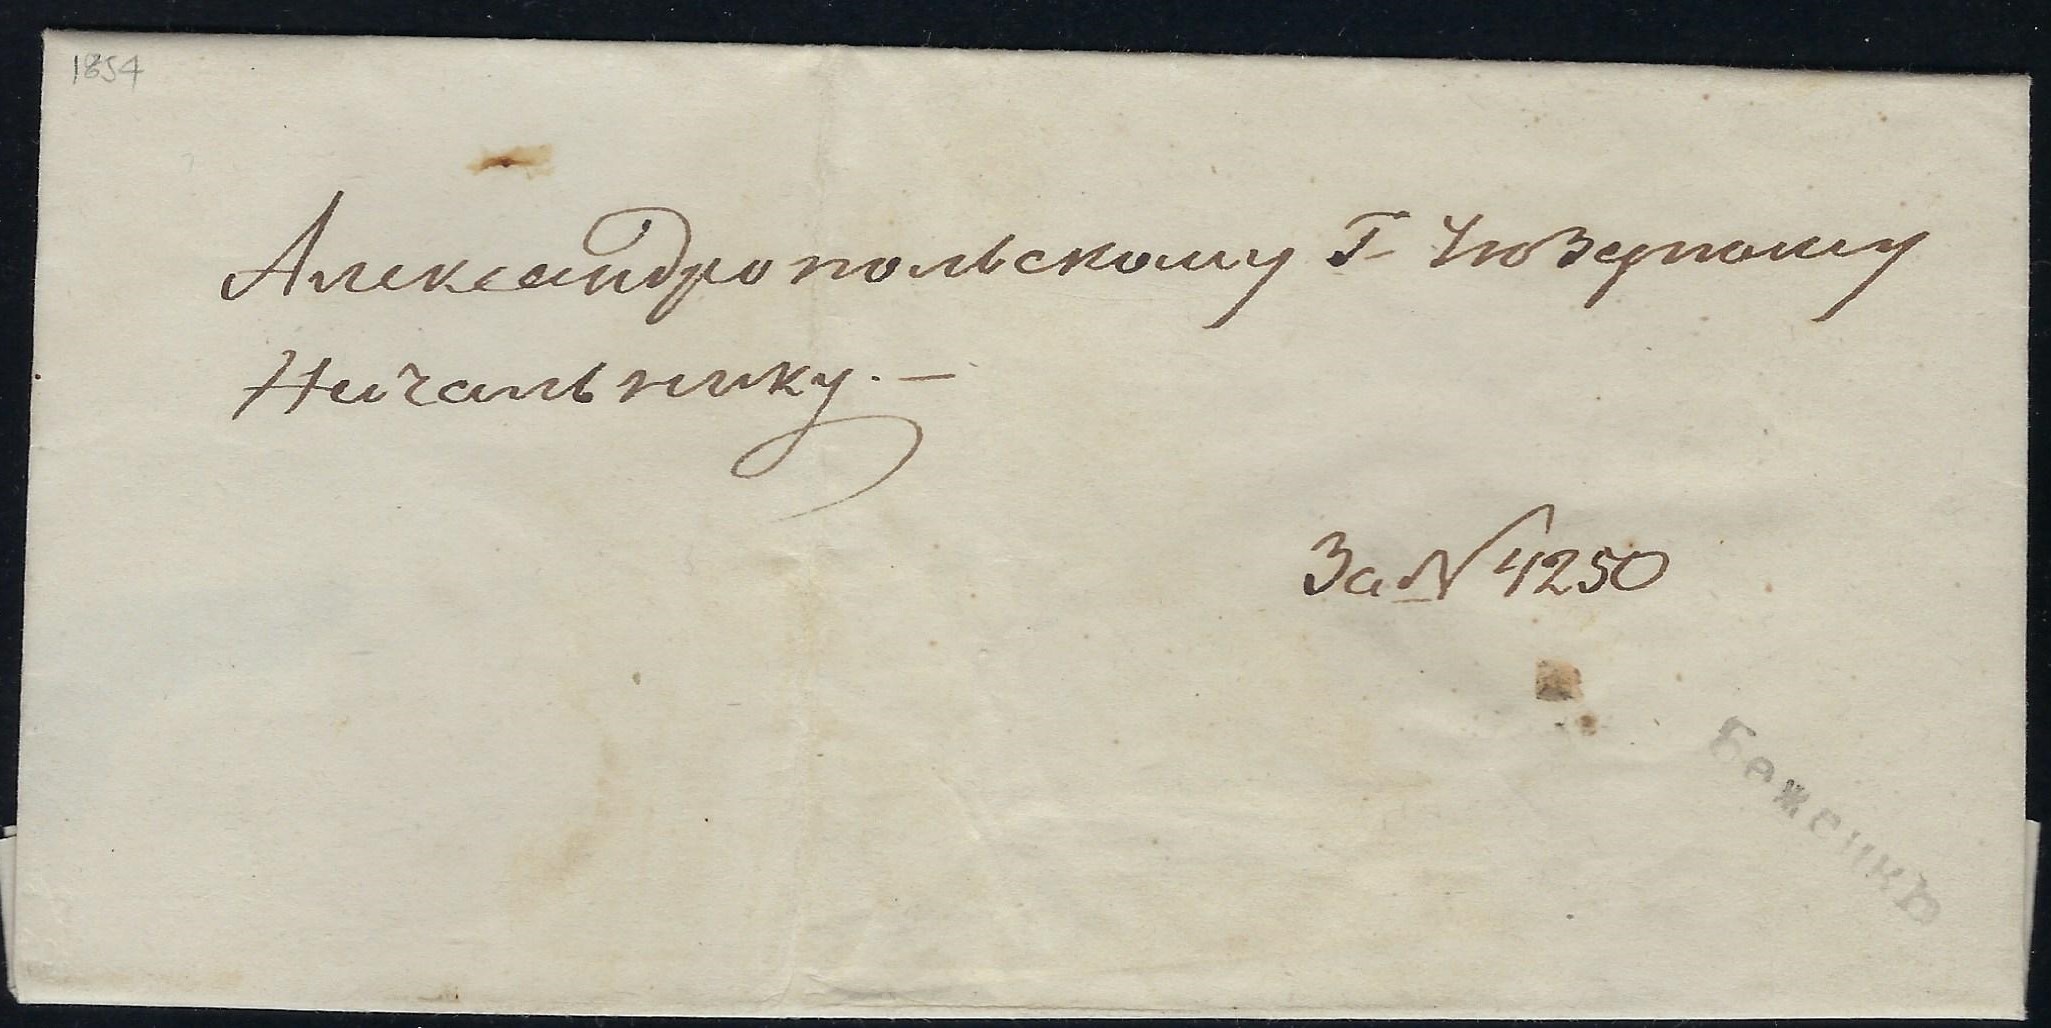 1854
Александропольскому Г Уѣздному
Начальнику. —
За № 4250
Баженикъ